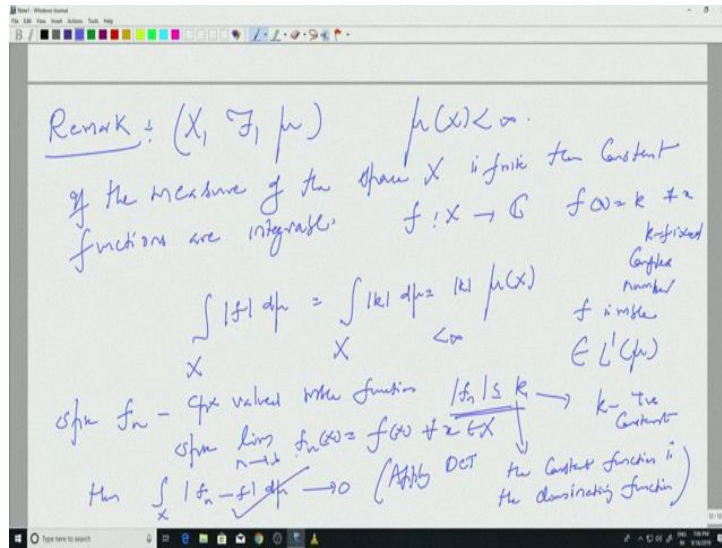 Note1 - Windows Journal
File Edit View Insert Actions Tools Help
Remark : (X, ℱ, μ) μ(X) < ∞.
If the measure of the space X is finite then Constant
functions are integrable. f : X → ℂ f(x) = k ∀ x
k - fixed
Complex
number
∫_X |f| dμ = ∫_X |k| dμ = |k| μ(X)
< ∞
f is mble
∈ L¹(μ)
Spse f_n - cpx valued mble function |f_n| ≤ k → k - +ve
Constant
Spse lim_{n→∞} f_n(x) = f(x) ∀ x ∈ X
then ∫_X |f_n - f| dμ → 0 (Apply DCT the Constant function is
the dominating function)
Type here to search
ENG 7:08 PM